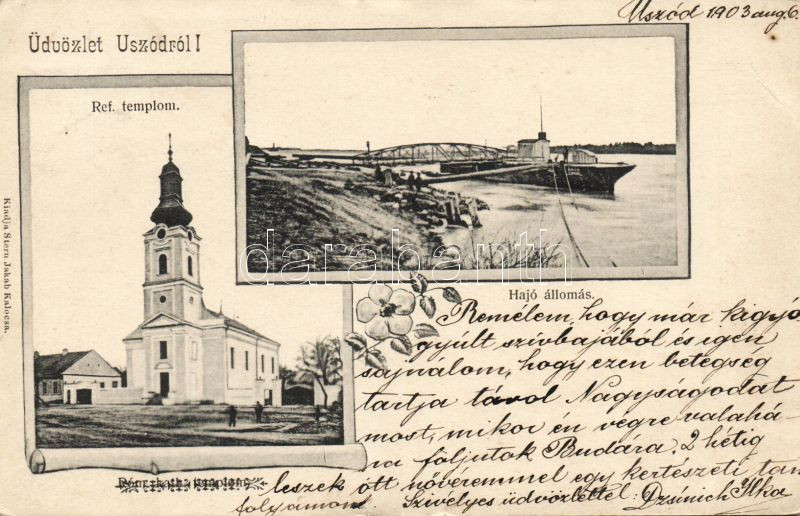 Uszód 1903 aug. 6.
Üdvözlet Uszódról!
Ref. templom.
Kiadja Stern Jakab Kalocsa.
darabanth
Hajó állomás.
Remélem, hogy már kigyó-
gyúlt szívbajából és igen
sajnálom, hogy ezen betegség
tartja távol Nagyságodat
most, mikor én végre valahá-
ra följutok Budára. 2 hétig
Róm. kath. templom.
leszek ott nővéremmel egy kertészeti tan
folyamon. Szívélyes üdvözlettel: Ilka